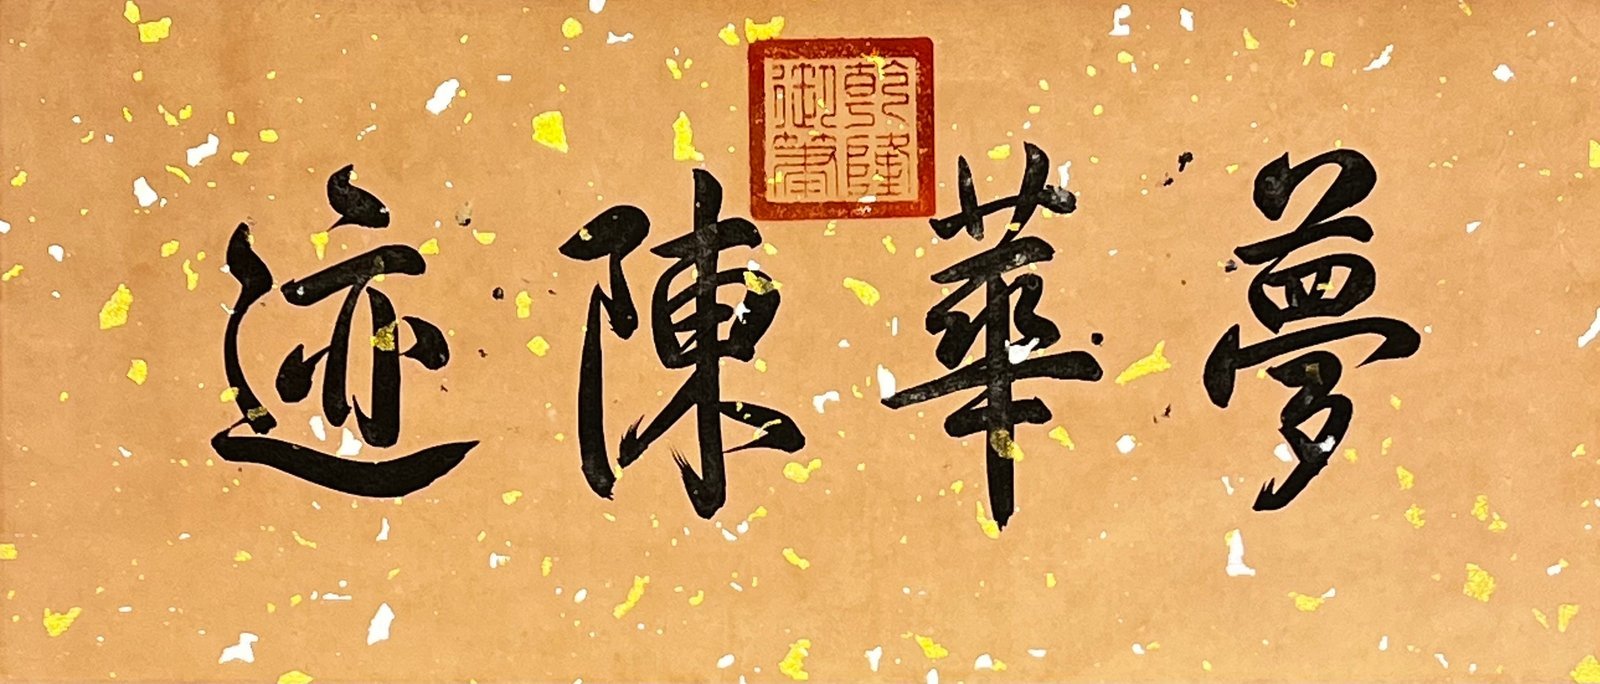 夢華陳迹
乾隆
御筆